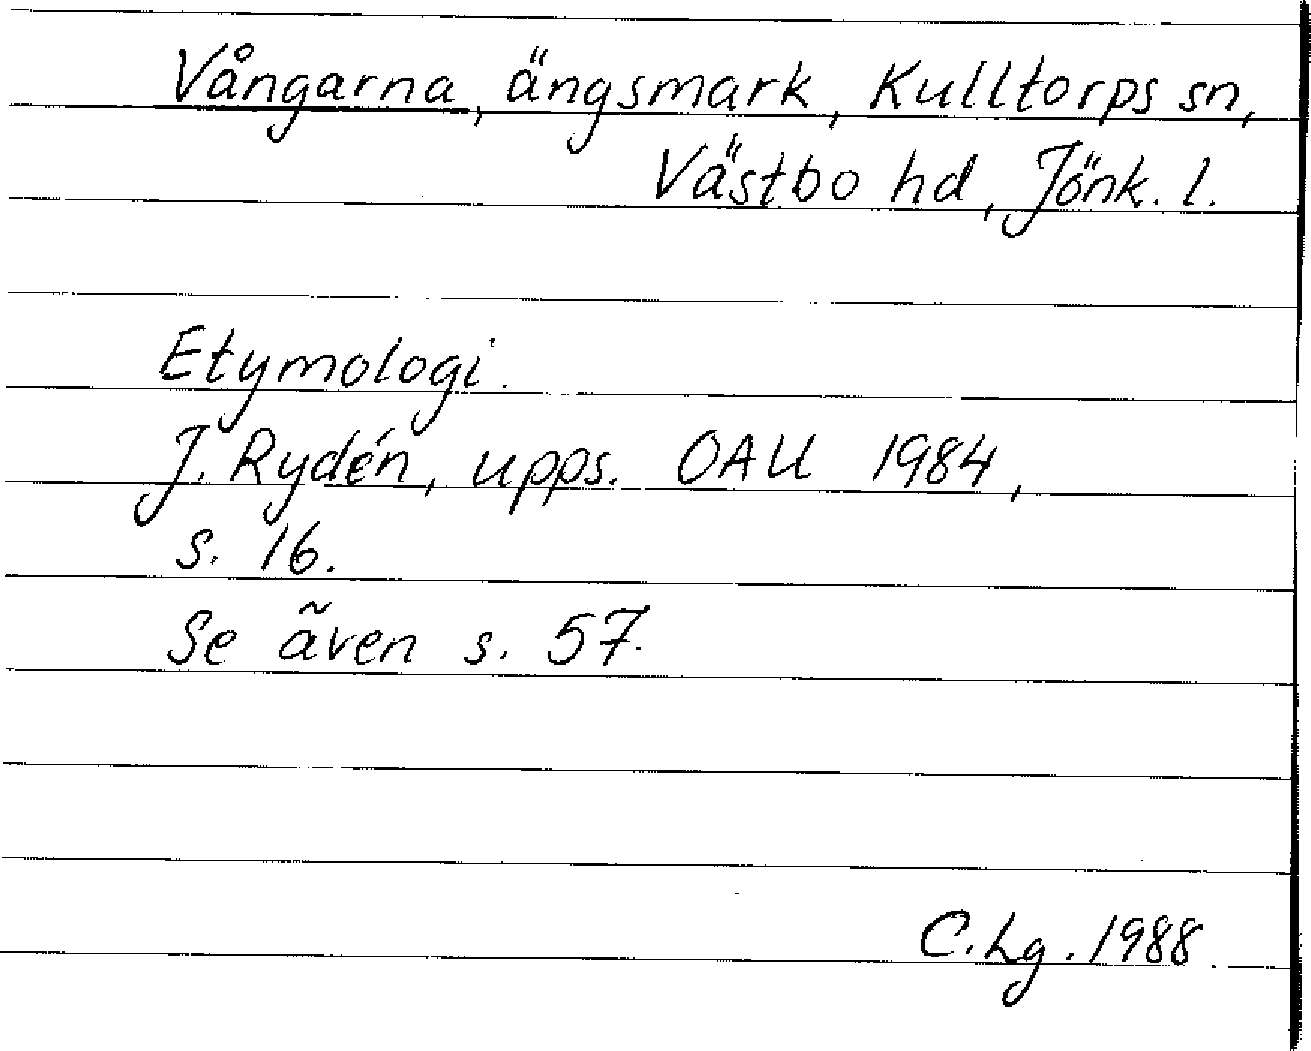 Vångarna, ängsmark, Kulltorps sn,
Västbo hd, Jönk. l.
Etymologi.
J. Rydén, upps. OAU 1984,
s. 16.
Se även s. 57.
C.Lg. 1988.